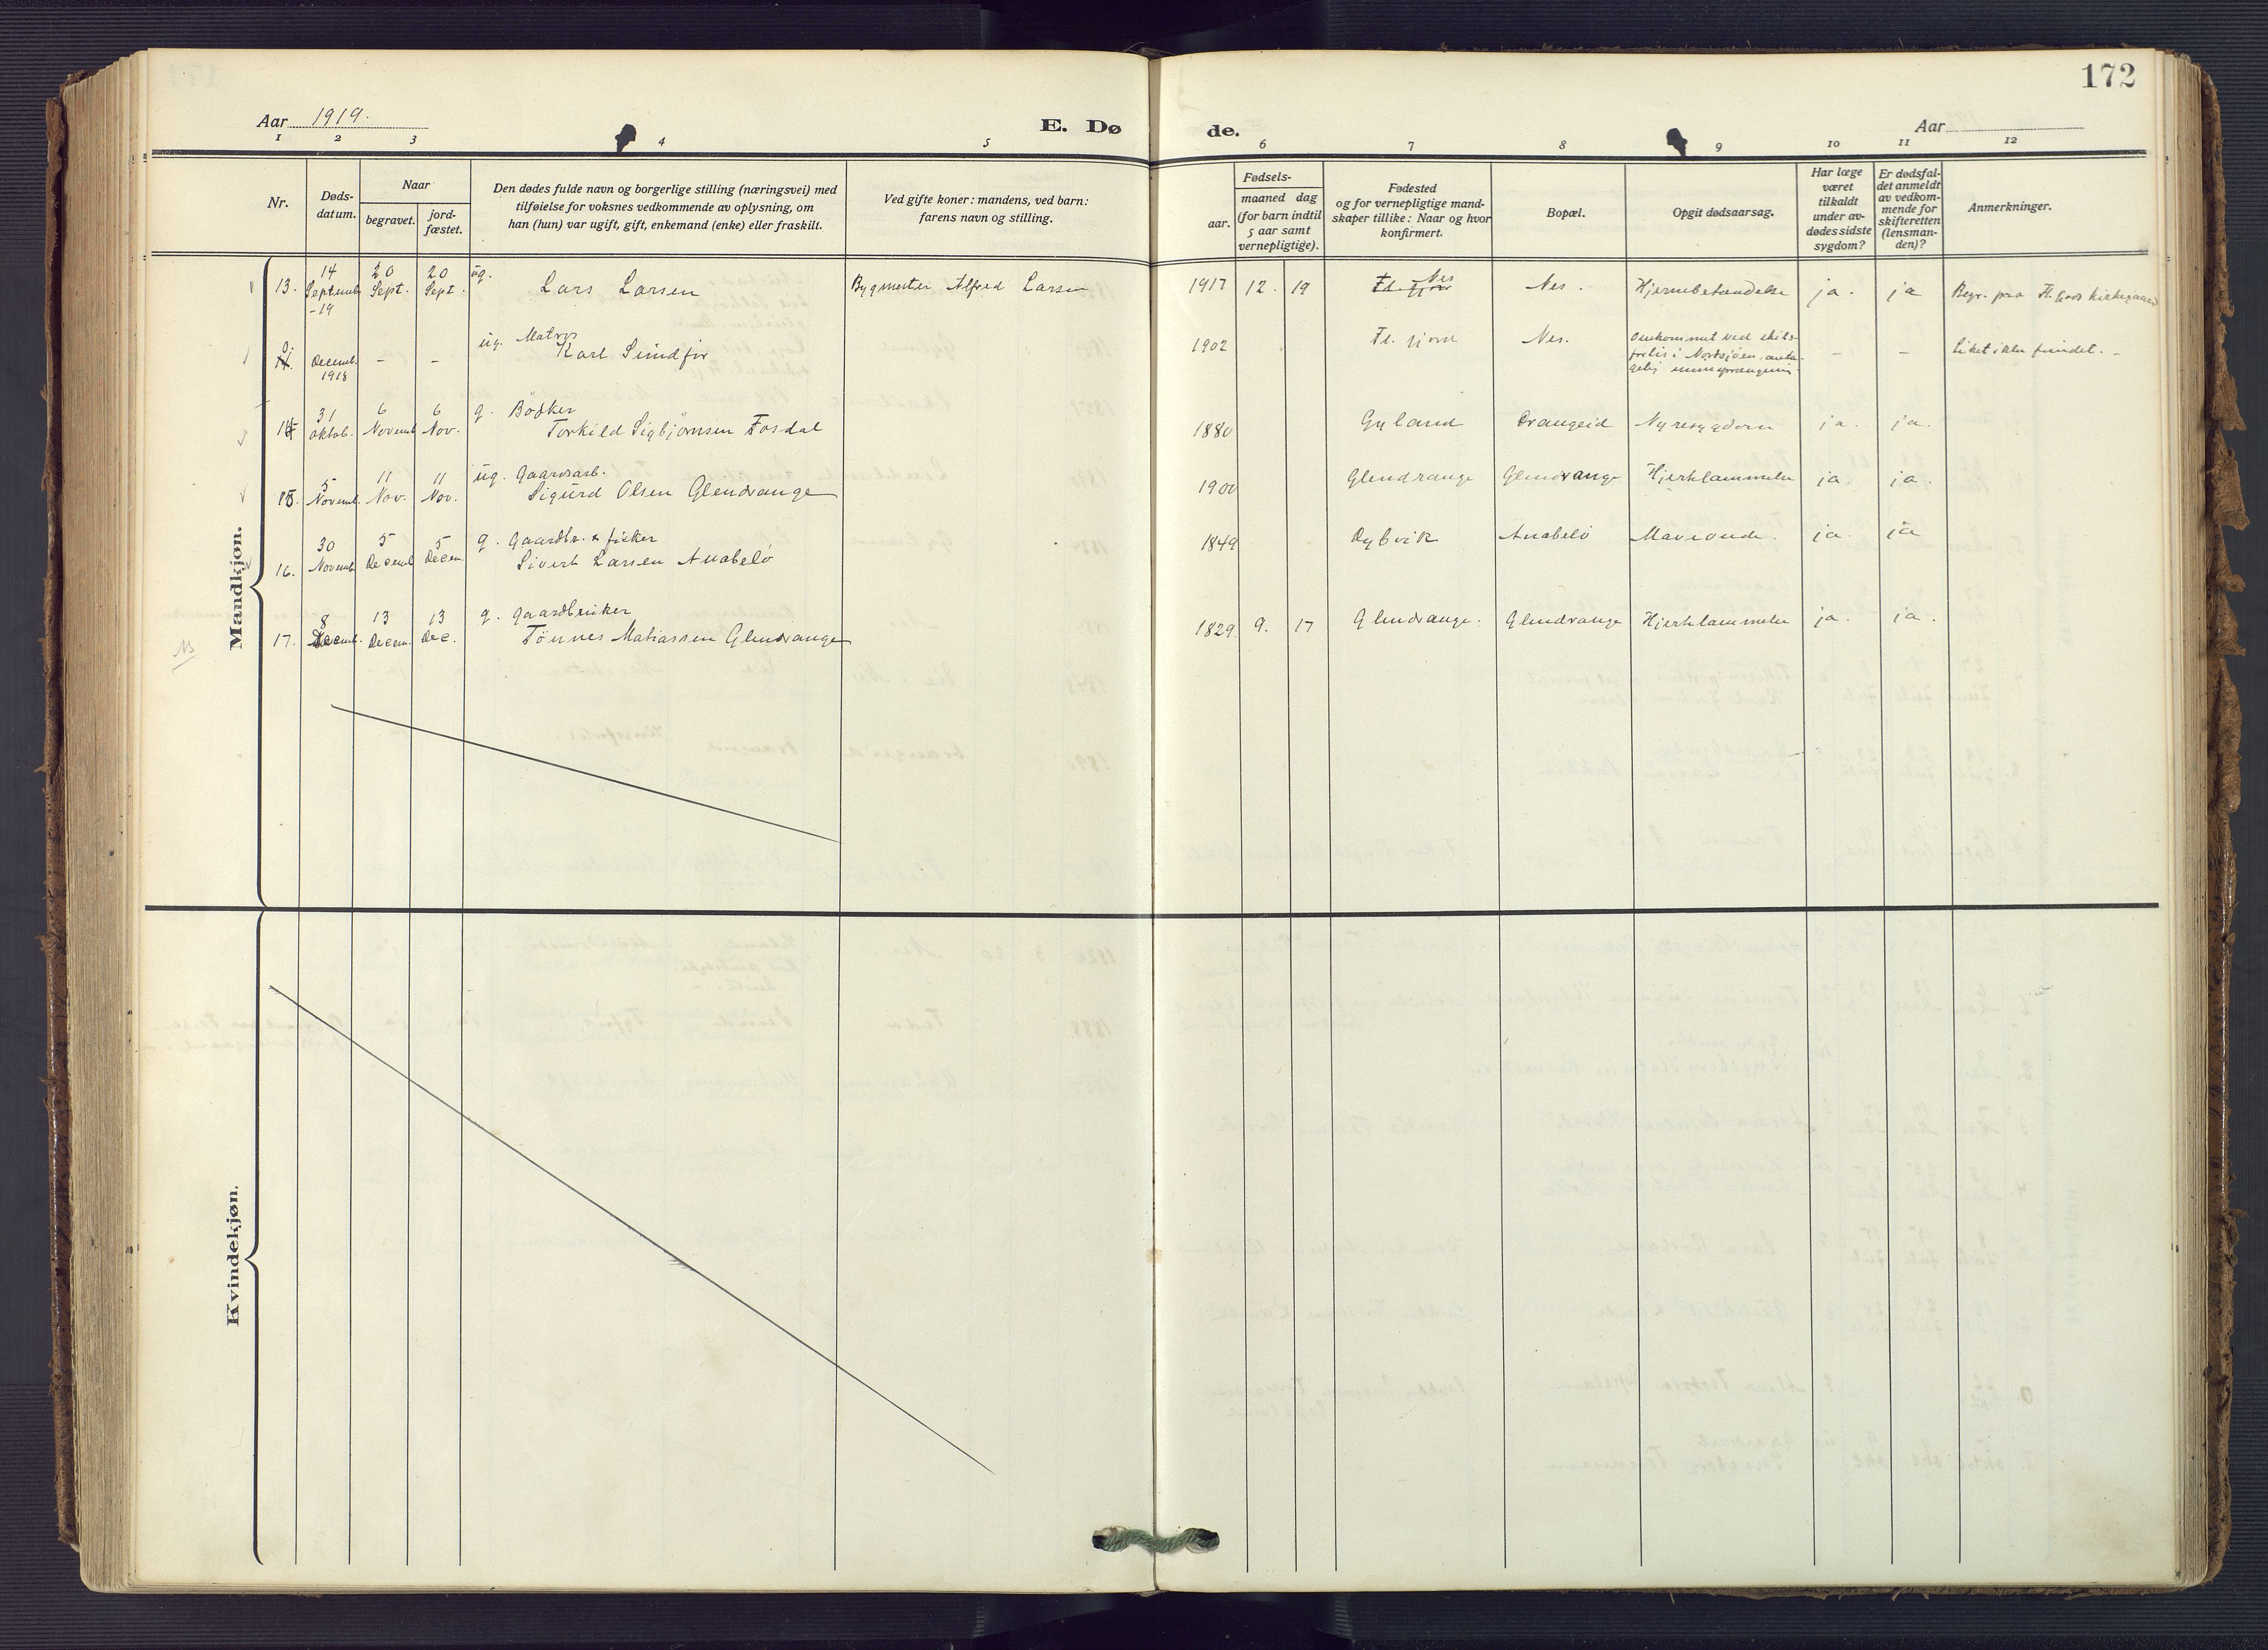 172
Aar 1919.
E. Dø
de.
Aar
1 2 3 4 5 6 7 8 9 10 11 12
Nr.
Døds-
datum.
Naar
begravet.
jord-
fæstet.
Den dødes fulde navn og borgerlige stilling (næringsvei) med
tilføielse for voksnes vedkommende av oplysning, om
han (hun) var ugift, gift, enkemand (enke) eller fraskilt.
Ved gifte koner: mandens, ved barn:
farens navn og stilling.
Fødsels-
aar.
maaned dag
(for barn indtil
5 aar samt
vernepligtige).
Fødested
og for vernepligtige mand-
skaper tillike: Naar og hvor
konfirmert.
Bopæl.
Opgit dødsaarsag.
Har læge
været
tilkaldt
under av-
dødes sidste
sygdom?
Er dødsfal-
det anmeldt
av vedkom-
mende for
skifteretten
(lensman-
den)?
Anmerkninger.
Mandkjøn.
13. 14 Septemb -19 20 Sept. 20 Sept. ug. Lars Larsen Bygmester Alfred Larsen 1917 12. 19 Fl. fjord Nes Nes. Hjernebetændelse ja. ja Begr. paa Fl. fjords kirkegaard
0. Decemb. 1918 - - ug. Matros
Karl Sundfør 1902 Fl. fjord Nes. Omkommet ved skibs-
forlis i Nordsjøen, anta-
gelig minesprængning. - - Liket ikke fundet. -
14. 31 oktob. 6 Novemb 6 Nov. g. Bødker
Torkild Sigbjørnsen Fosdal 1880 Gyland Drangeid Nyresygdom ja. ja.
15. 5 Novemb. 11 Nov. 11 Nov. ug. Gaardsarb.
Sigurd Olsen Glendrange 1900 Glendrange Glendrange Hjertelammelse ja. ja.
16. 30 Novemb 5 Decemb 5 Decem. g. Gaardbr. & fisker
Sivert Larsen Anabelø 1849 Dybvik Anabelø Maveonde. ja. ja
17. 8 Decemb. 13 Decem. 13 Dec. g. Gaardbruker
Tønnes Matiassen Glendrange 1829. 9. 17 Glendrange. Glendrange Hjertelammelse ja. ja.
Kvindekjøn.